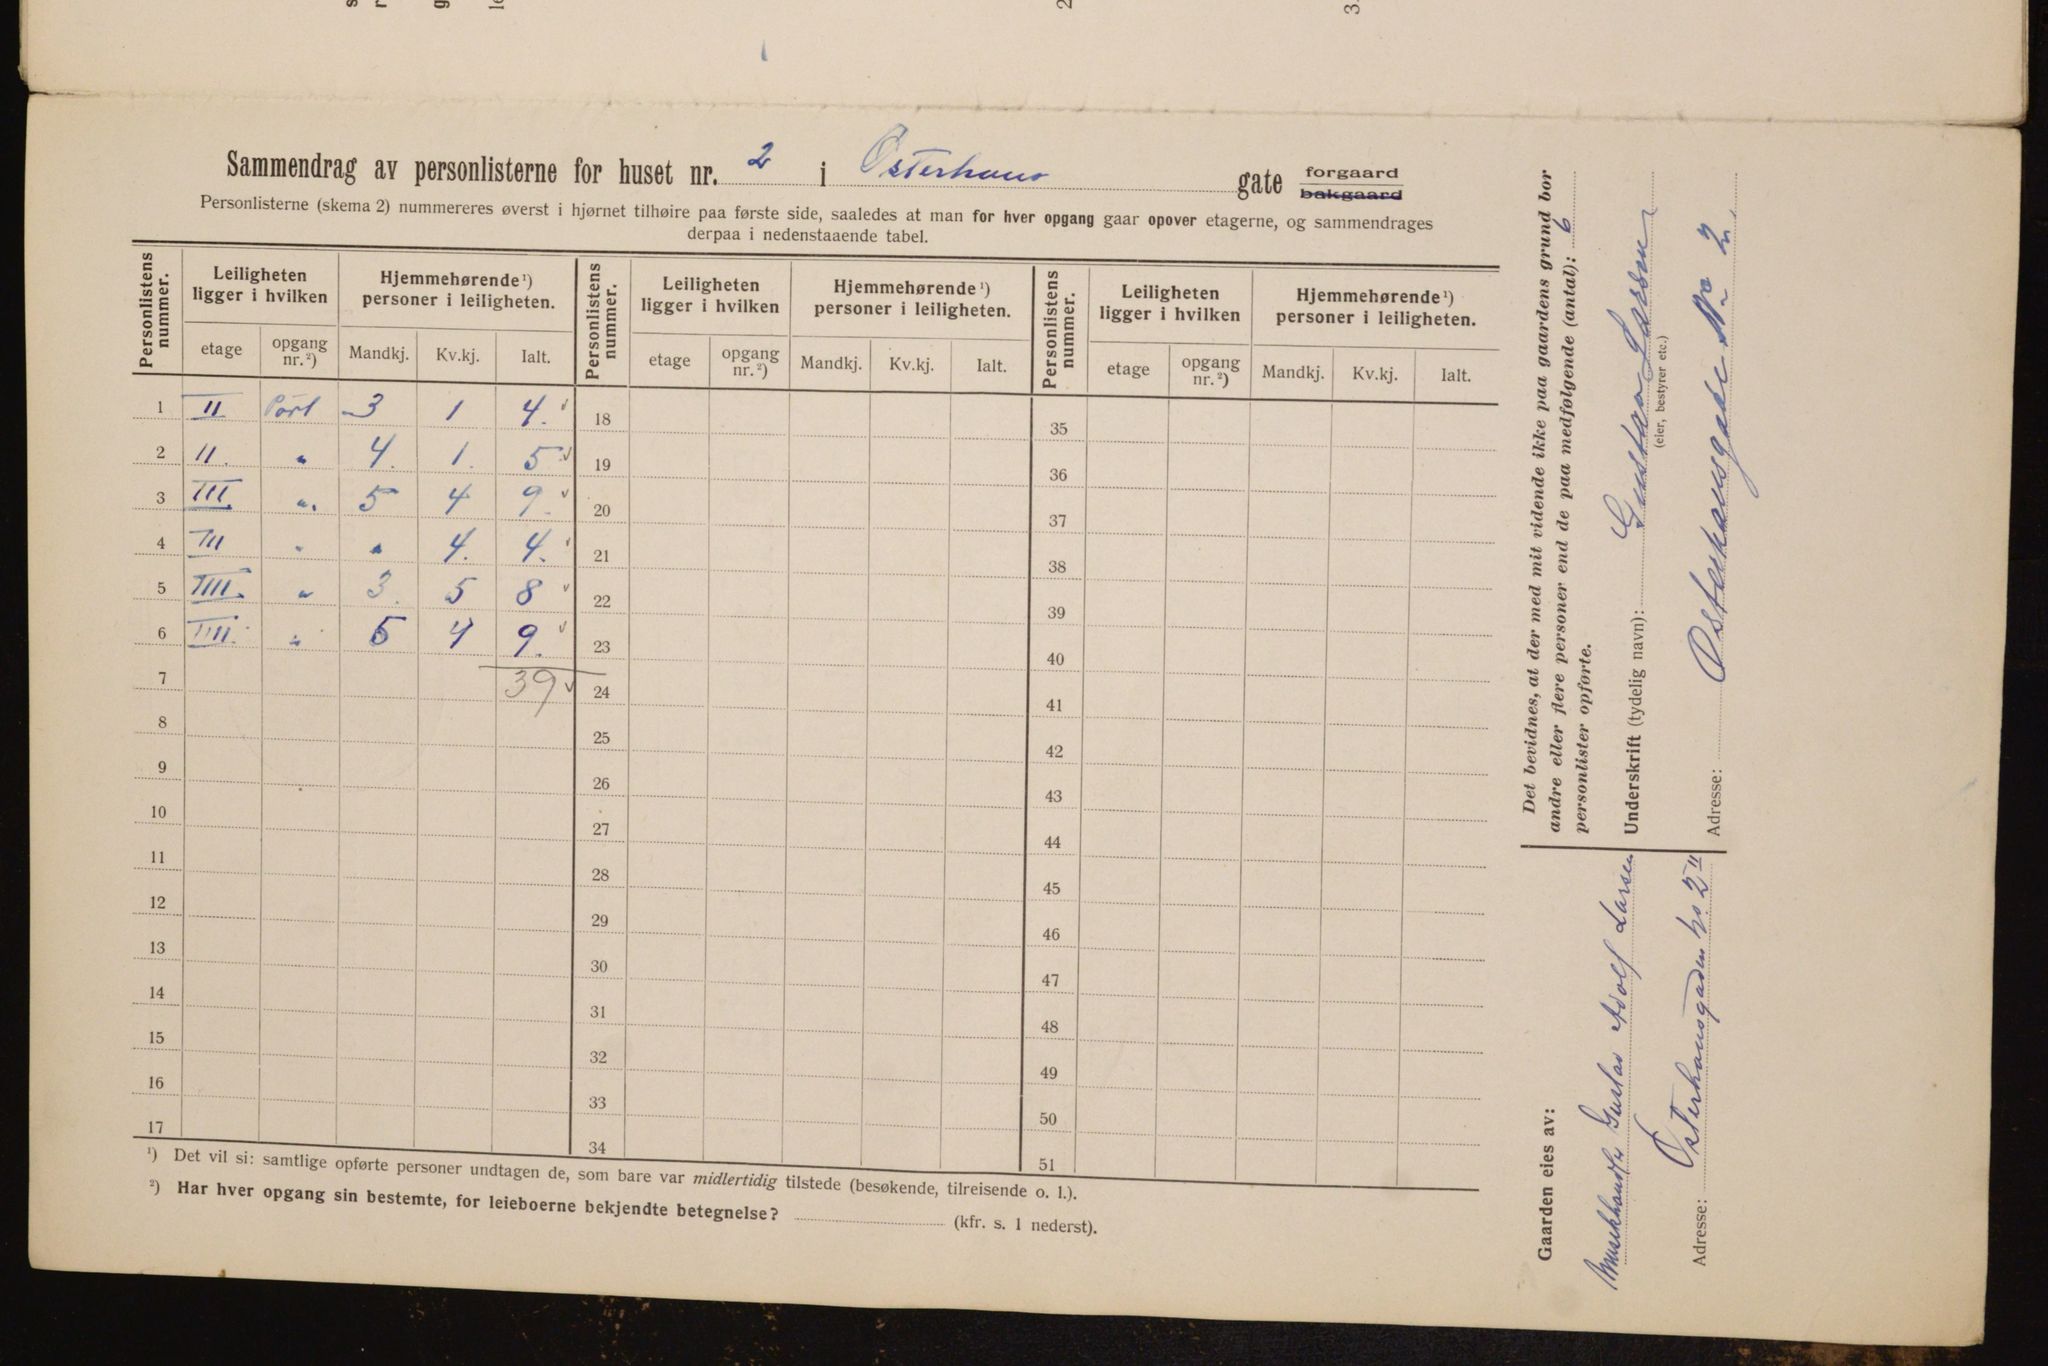 Sammendrag av personlisterne for huset nr. 2 i Osterhaus gate forgaard bakgaard
Personlisterne (skema 2) nummereres øverst i hjørnet tilhøire paa første side, saaledes at man for hver opgang gaar opover etagerne, og sammendrages
derpaa i nedenstaaende tabel.
Personlistens nummer. Leiligheten ligger i hvilken Hjemmehørende ¹) personer i leiligheten. Personlistens nummer. Leiligheten ligger i hvilken Hjemmehørende ¹) personer i leiligheten. Personlistens nummer. Leiligheten ligger i hvilken Hjemmehørende ¹) personer i leiligheten.
etage opgang nr. ²) Mandkj. Kv.kj. Ialt. etage opgang nr. ²) Mandkj. Kv.kj. Ialt. etage opgang nr. ²) Mandkj. Kv.kj. Ialt.
1 II Port 3 1 4. 18 35
2 II. " 4. 1. 5 19 36
3 III " 5 4 9. 20 37
4 III " " 4. 4. 21 38
5 IIII. " 3. 5 8 22 39
6 IIII. " 5 4 9. 23 40
7 39 24 41
8 25 42
9 26 43
10 27 44
11 28 45
12 29 46
13 30 47
14 31 48
15 32 49
16 33 50
17 34 51
¹) Det vil si: samtlige opførte personer undtagen de, som bare var midlertidig tilstede (besøkende, tilreisende o. l.).
²) Har hver opgang sin bestemte, for leieboerne bekjendte betegnelse? (kfr. s. 1 nederst).
Det bevidnes, at der med mit vidende ikke paa gaardens grund bor
andre eller flere personer end de paa medfølgende (antal): 6
personlister opførte.
Underskrift (tydelig navn): Gustav Larsen
(eier, bestyrer etc.)
Adresse: Osterhausgade No 2
Gaarden eies av:
Musikhandler Gustav Adolf Larsen
Adresse: Osterhausgaden No. 2 II